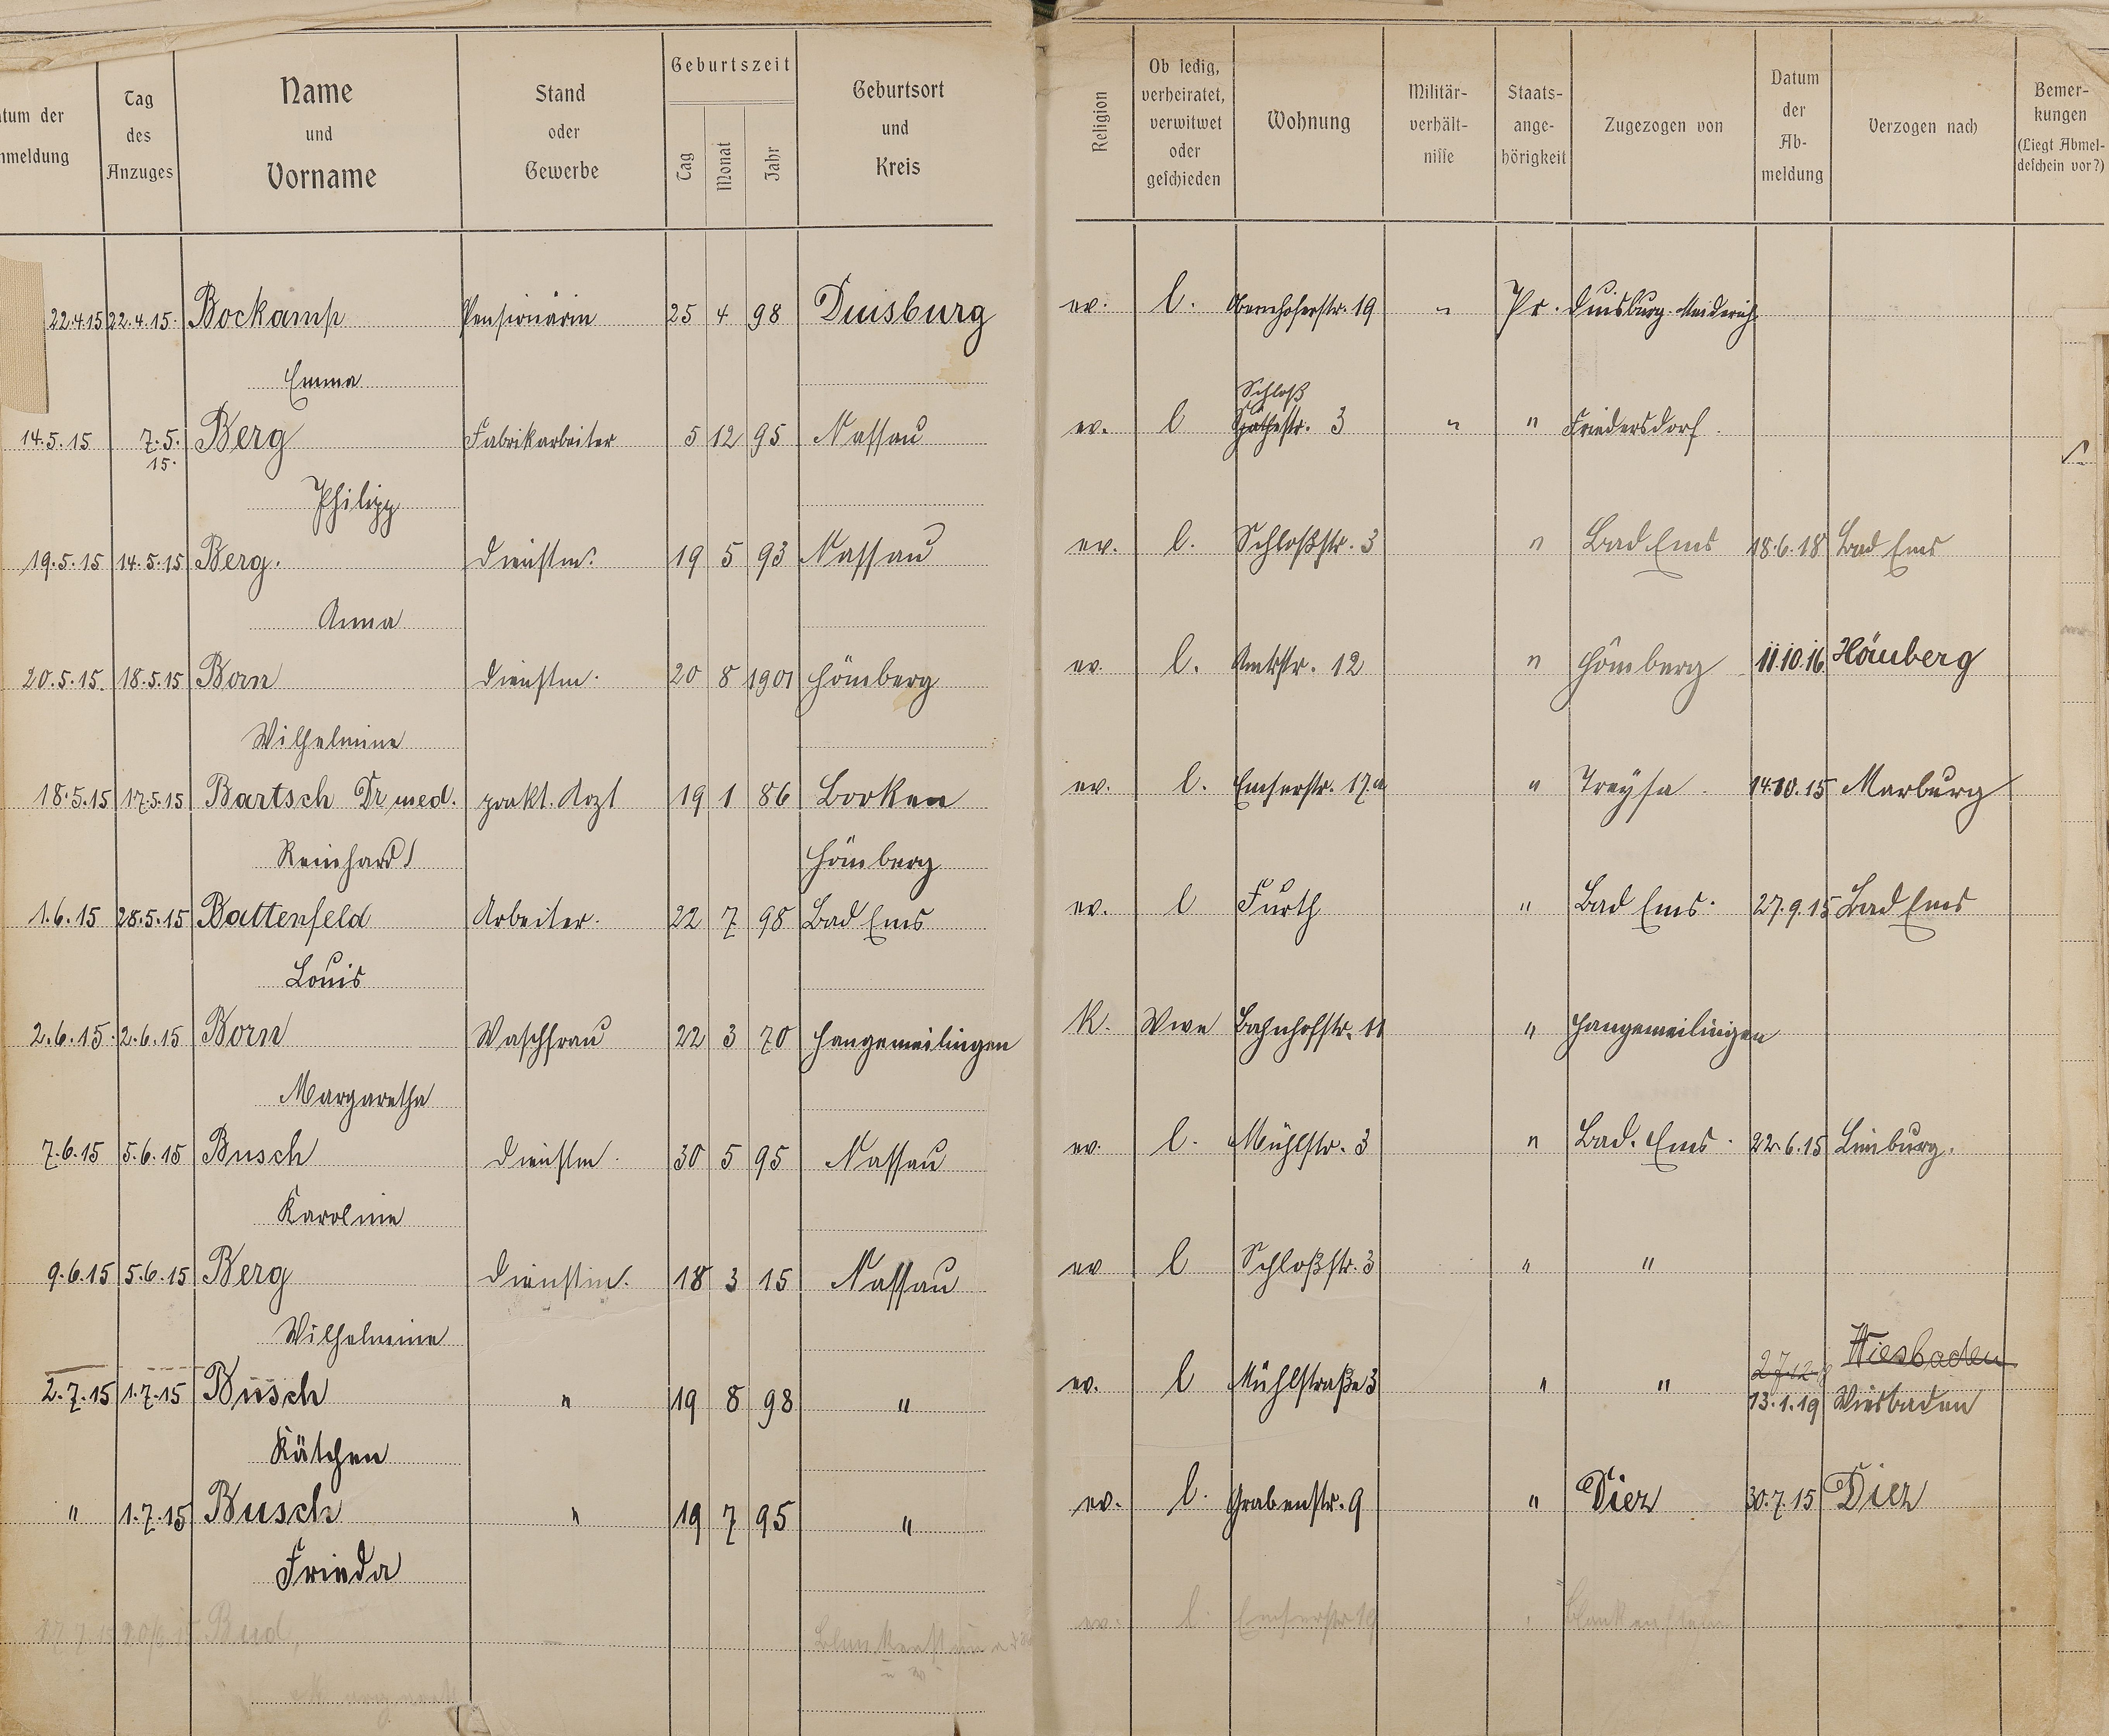 Datum der Anmeldung
Tag des Anzuges
Name und Vorname
Stand oder Gewerbe
Geburtszeit
Tag Monat Jahr
Geburtsort und Kreis
Religion
Ob ledig, verheiratet, verwitwet oder geschieden
Wohnung
Militär-verhält-nisse
Staats-ange-hörigkeit
Zugezogen von
Datum der Ab-meldung
Verzogen nach
Bemer-kungen (Liegt Abmel-deschein vor?)
22.4.15 22.4.15. Bockamp Pensionärin 25 4 98 Duisburg ev. l. Obernhoferstr. 19 " Pr. Duisburg-Meiderich
Emma
Schloß
14.5.15 7.5. Berg Fabrikarbeiter 5 12 95 Nassau ev. l 3 " " Friedersdorf.
15.
Philipp
19.5.15 14.5.15 Berg. Dienstm. 19 5 93 Nassau ev. l. Schloßstr. 3 " Bad Ems 18.6.18 Bad Ems
Anna
20.5.15. 18.5.15 Born Dienstm. 20 8 1901 Hömberg ev. l. Amtstr. 12 " Hömberg 11.10.16 Hömberg
Wilhelmine
18.5.15 17.5.15 Bartsch Dr. med. prakt. Arzt 19 1 86 Borken ev. l. Emserstr. 17.a " Treysa 14.10.15 Marburg
Reinhard Hömberg
1.6.15 28.5.15 Battenfeld Arbeiter. 22 7 98 Bad Ems ev. l Furth " Bad Ems. 27.9.15 Bad Ems
Louis
2.6.15. 2.6.15 Born Waschfrau 22 3 70 Hangemeilingen K. Wwe Bahnhofstr. 11 " Hangemeilingen
Margaretha
7.6.15 5.6.15 Busch Dienstm. 30 5 95 Nassau ev. l. Mühlstr. 3 " Bad. Ems. 22.6.15 Limburg.
Karoline
9.6.15 5.6.15 Berg Dienstm. 18 3 15 Nassau ev l Schloßstr. 3 " "
Wilhelmine
Wiesbaden
2.7.15 1.7.15 Busch " 19 8 98 " ev. l Mühlstraße 3 " " 13.1.19 Wiesbaden
Kätchen
" 1.7.15 Busch " 19 7 95 " ev. l. Grabenstr. 9 " Diez 30.7.15 Diez
Frieda
ev. l. Emserstr Blankenstein